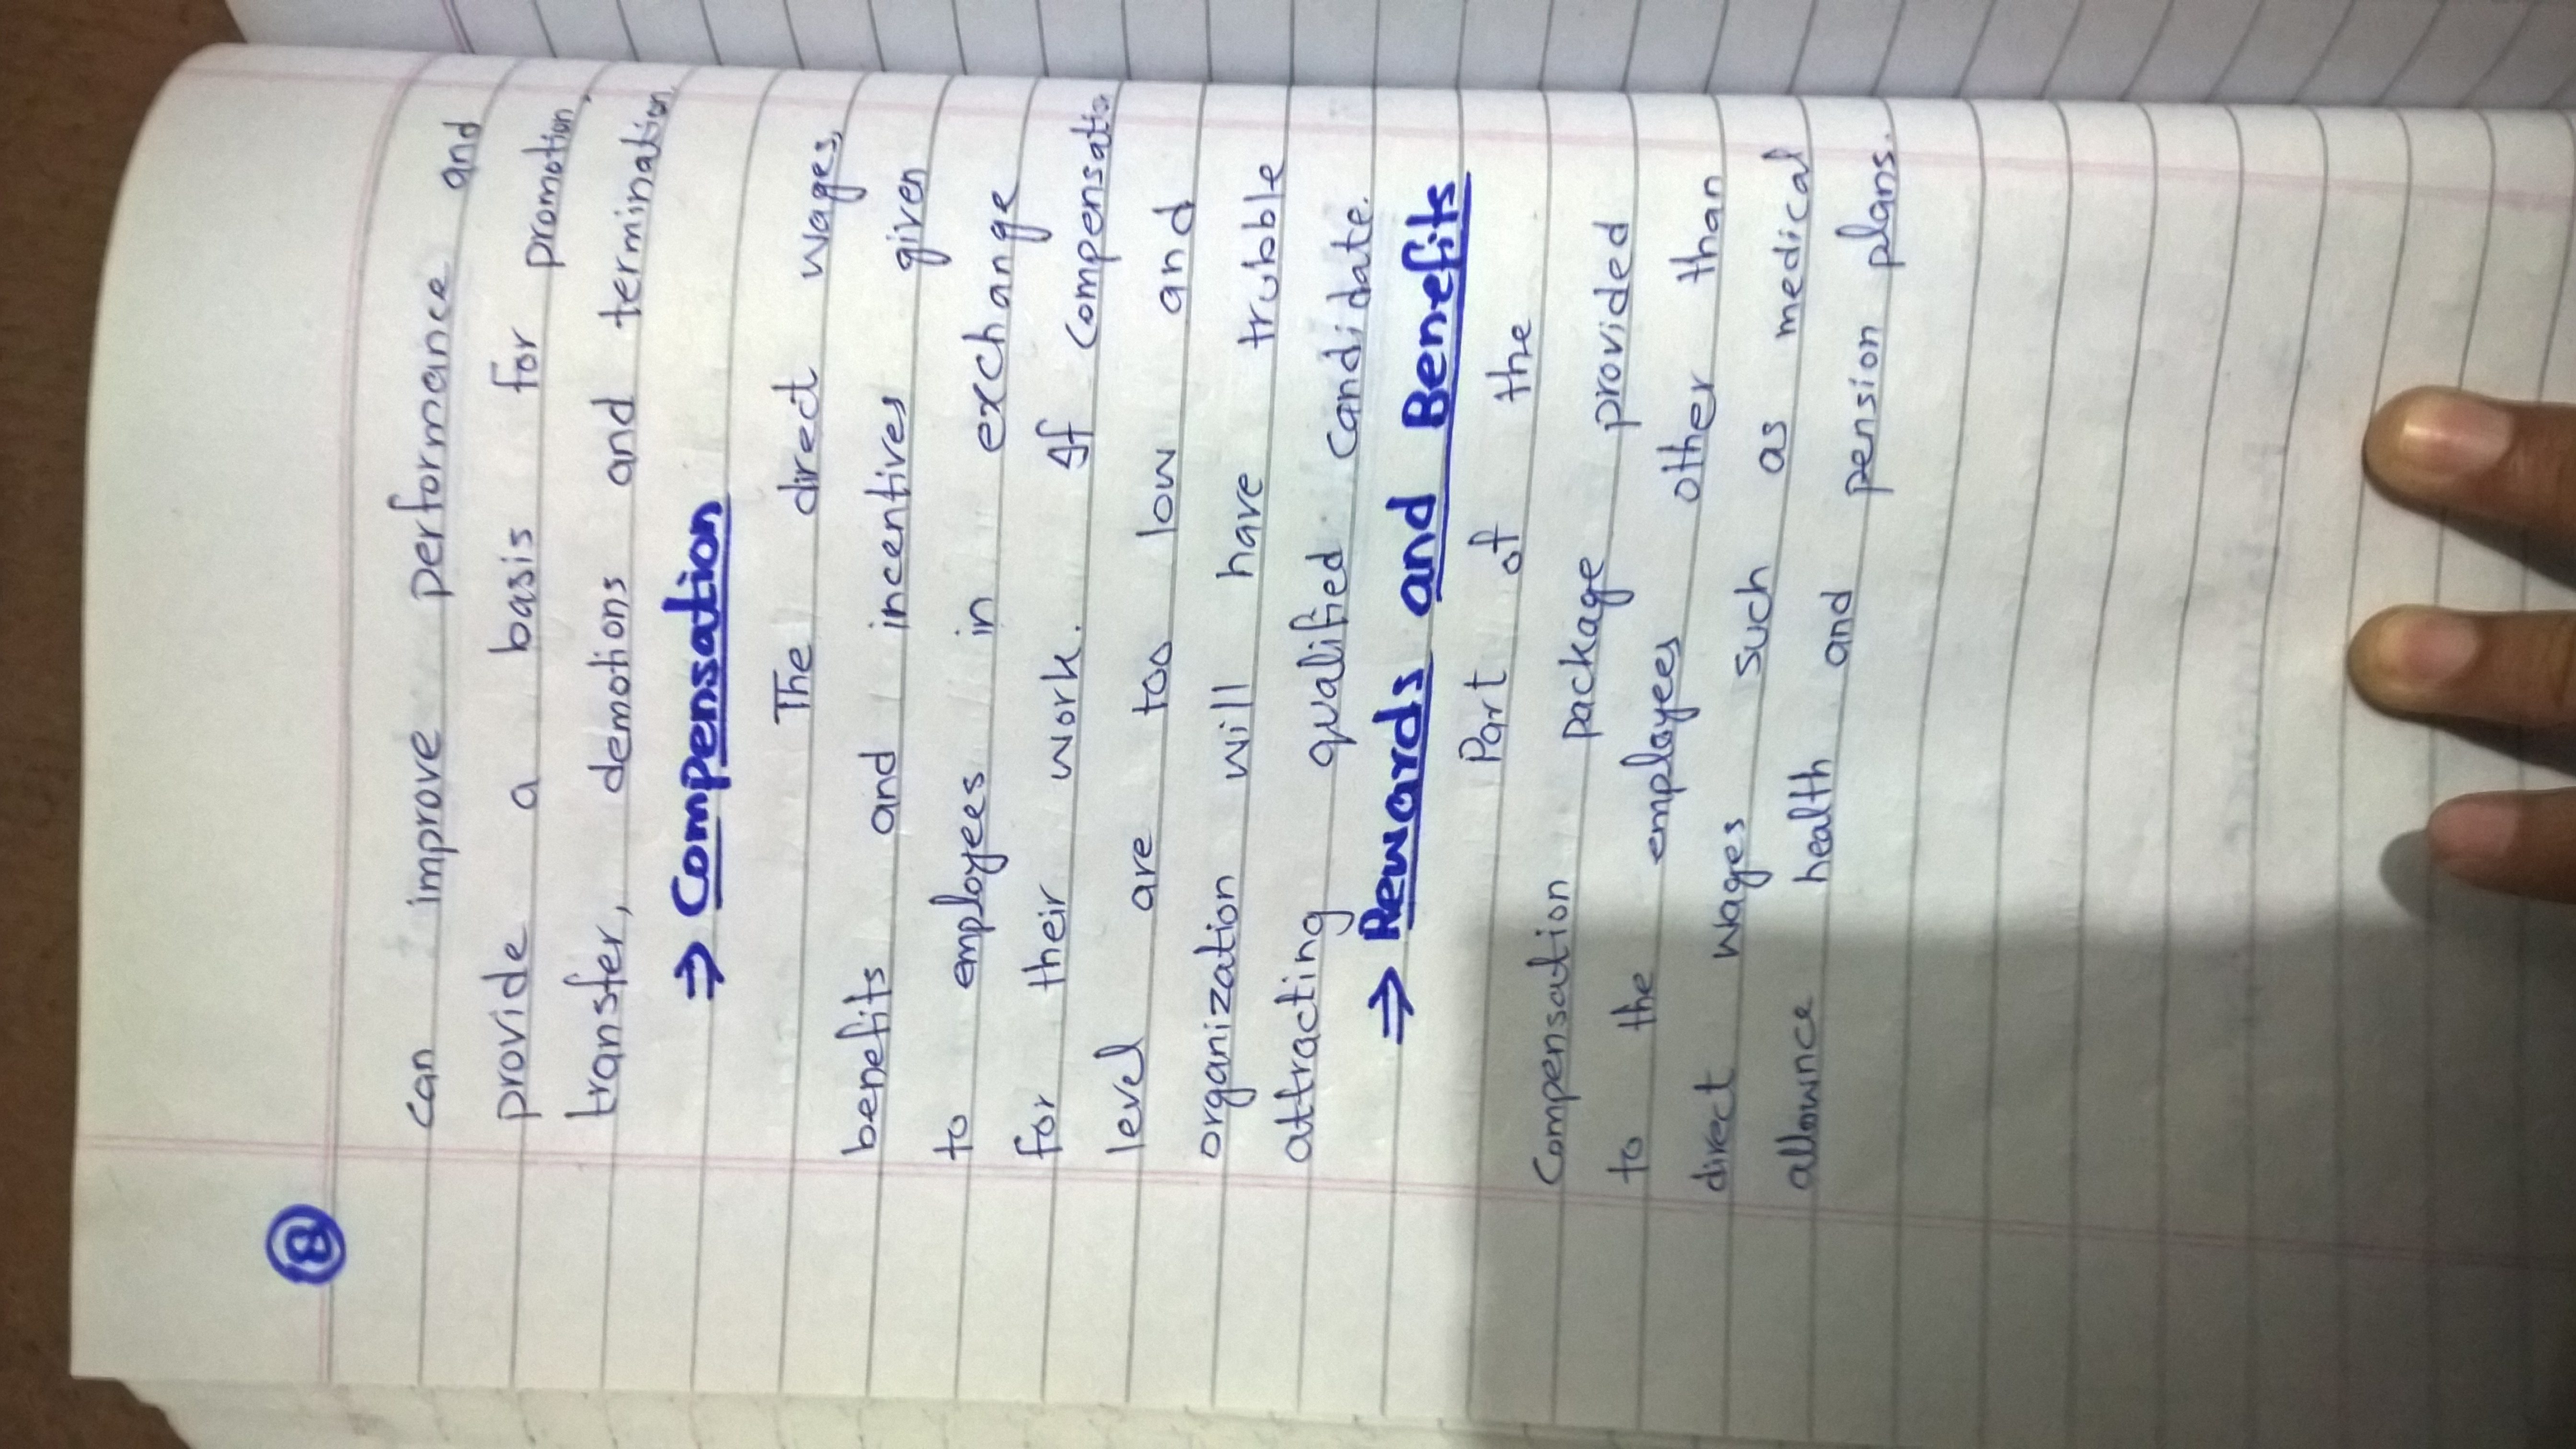 8
can improve performance and
provide a basis for promotion,
transfer, demotions and termination.
⇒ Compensation
The direct wages,
benefits and incentives given
to employees in exchange
for their work. If compensatio
level are too low and
organization will have trubble
attracting qualified candidate.
⇒ Rewards and Benefits
Part of the
Compensation package provided
to the employees other than
direct wages such as medical
allownce health and pension plans.